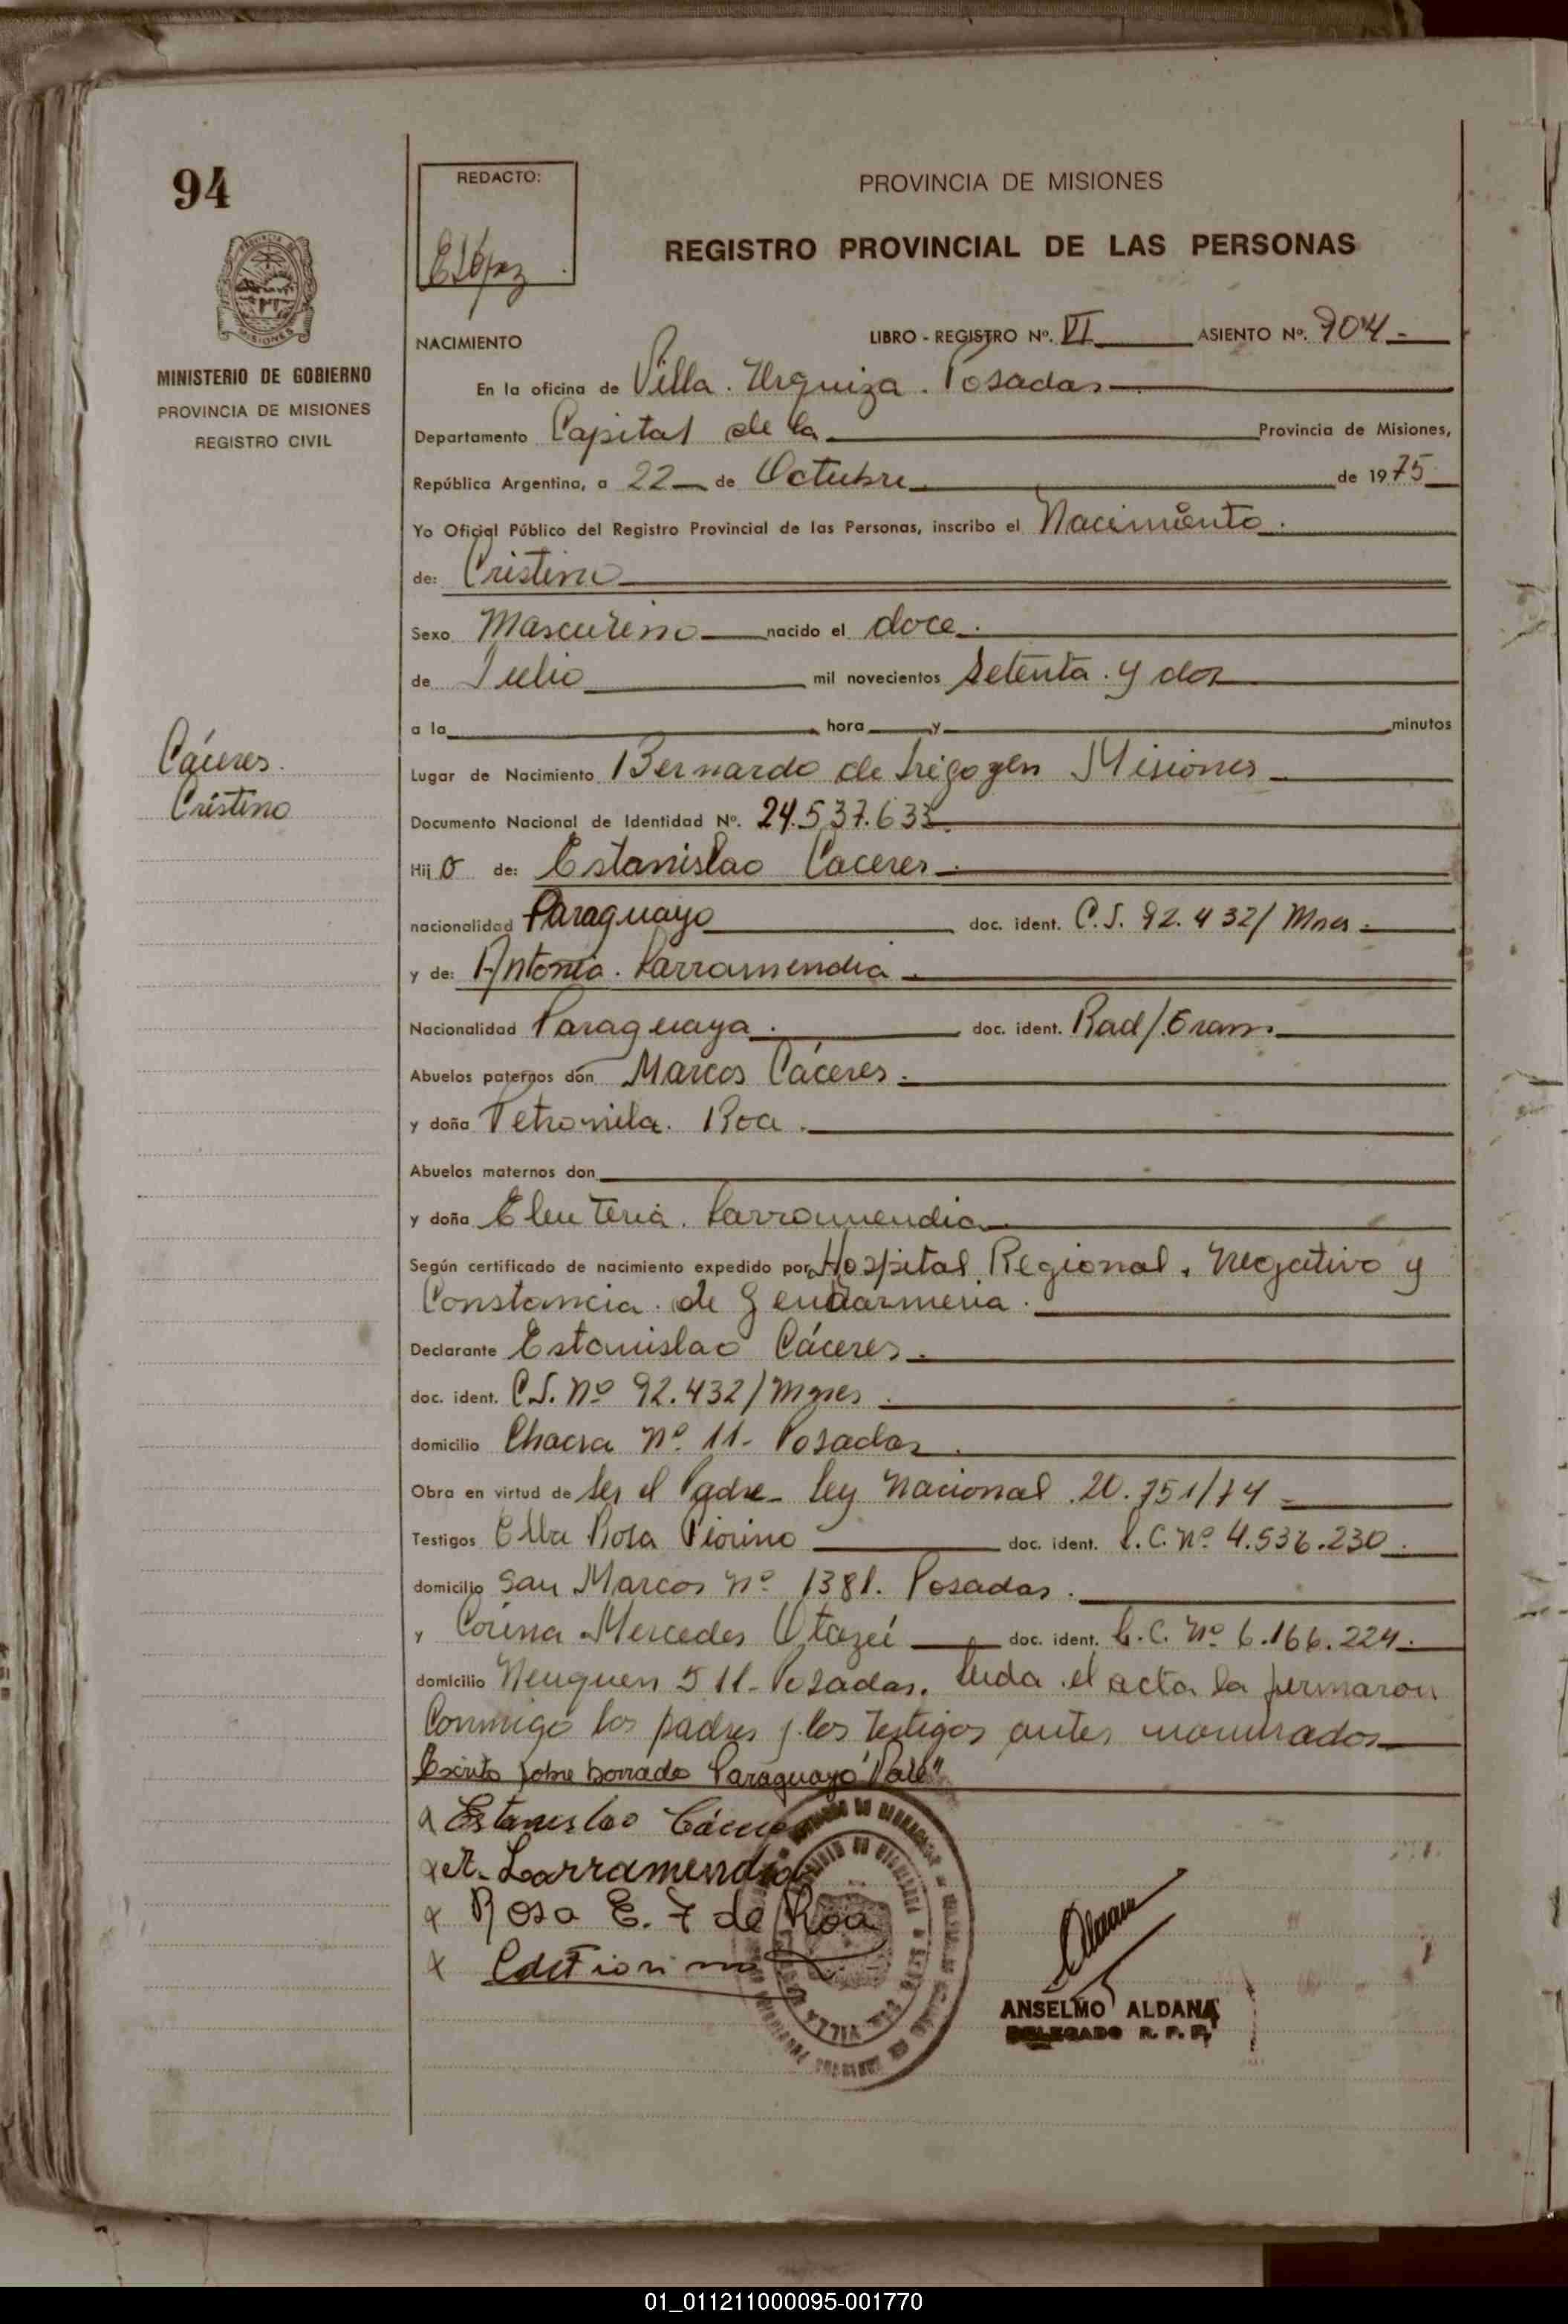 94
REDACTO:
ELópez
PROVINCIA DE MISIONES
REGISTRO PROVINCIAL DE LAS PERSONAS
MISIONES
MINISTERIO DE GOBIERNO
PROVINCIA DE MISIONES
REGISTRO CIVIL
NACIMIENTO LIBRO - REGISTRO Nº. VI ASIENTO Nº. 904-
En la oficina de Villa. Urquiza. Posadas
Departamento Capital de la Provincia de Misiones,
República Argentina, a 22 de Octubre de 1975
Yo Oficial Público del Registro Provincial de las Personas, inscribo el Nacimiento.
de: Cristino
Sexo Masculino nacido el doce.
de Julio mil novecientos setenta y dos
a la hora y minutos
Cáceres.
Cristino
Lugar de Nacimiento Bernardo de Irigoyen Misiones
Documento Nacional de Identidad Nº. 24.537.633
Hijo de: Estanislao Caceres.
nacionalidad Paraguayo doc. ident. C.I. 92.432/ Mnes.
y de: Antonia. Larramendia.
Nacionalidad Paraguaya. doc. ident. Rad/
Abuelos paternos don Marcos Cáceres.
y doña Petronila. Roa.
Abuelos maternos don
y doña Eleuteria. Larramendia
Según certificado de nacimiento expedido por Hospital Regional. Negativo y
Constancia. de gendarmeria.
Declarante Estanislao Cáceres.
doc. ident. C.I. Nº 92.432/Mnes.
domicilio Chacra Nº. 11- Posadas.
Obra en virtud de ser el Padre- Ley Nacional 20.751/74
Testigos Elba Rosa Fiorino doc. ident. L.C. Nº 4.536.230.
domicilio San Marcos Nº 1381. Posadas.
y Corina Mercedes doc. ident. L.C. Nº 6.166.224.
domicilio Neuquen 511- Posadas. Leida el acta la firmaron
Conmigo los padres y los testigos antes nombrados
Escrito sobre borrado Paraguayo "Vale"
x Estanislao Cáceres
x A. Larramendia
x Rosa E. F de Roa
x
ANSELMO ALDANA
DELEGADO R. P. P.
01_011211000095-001770